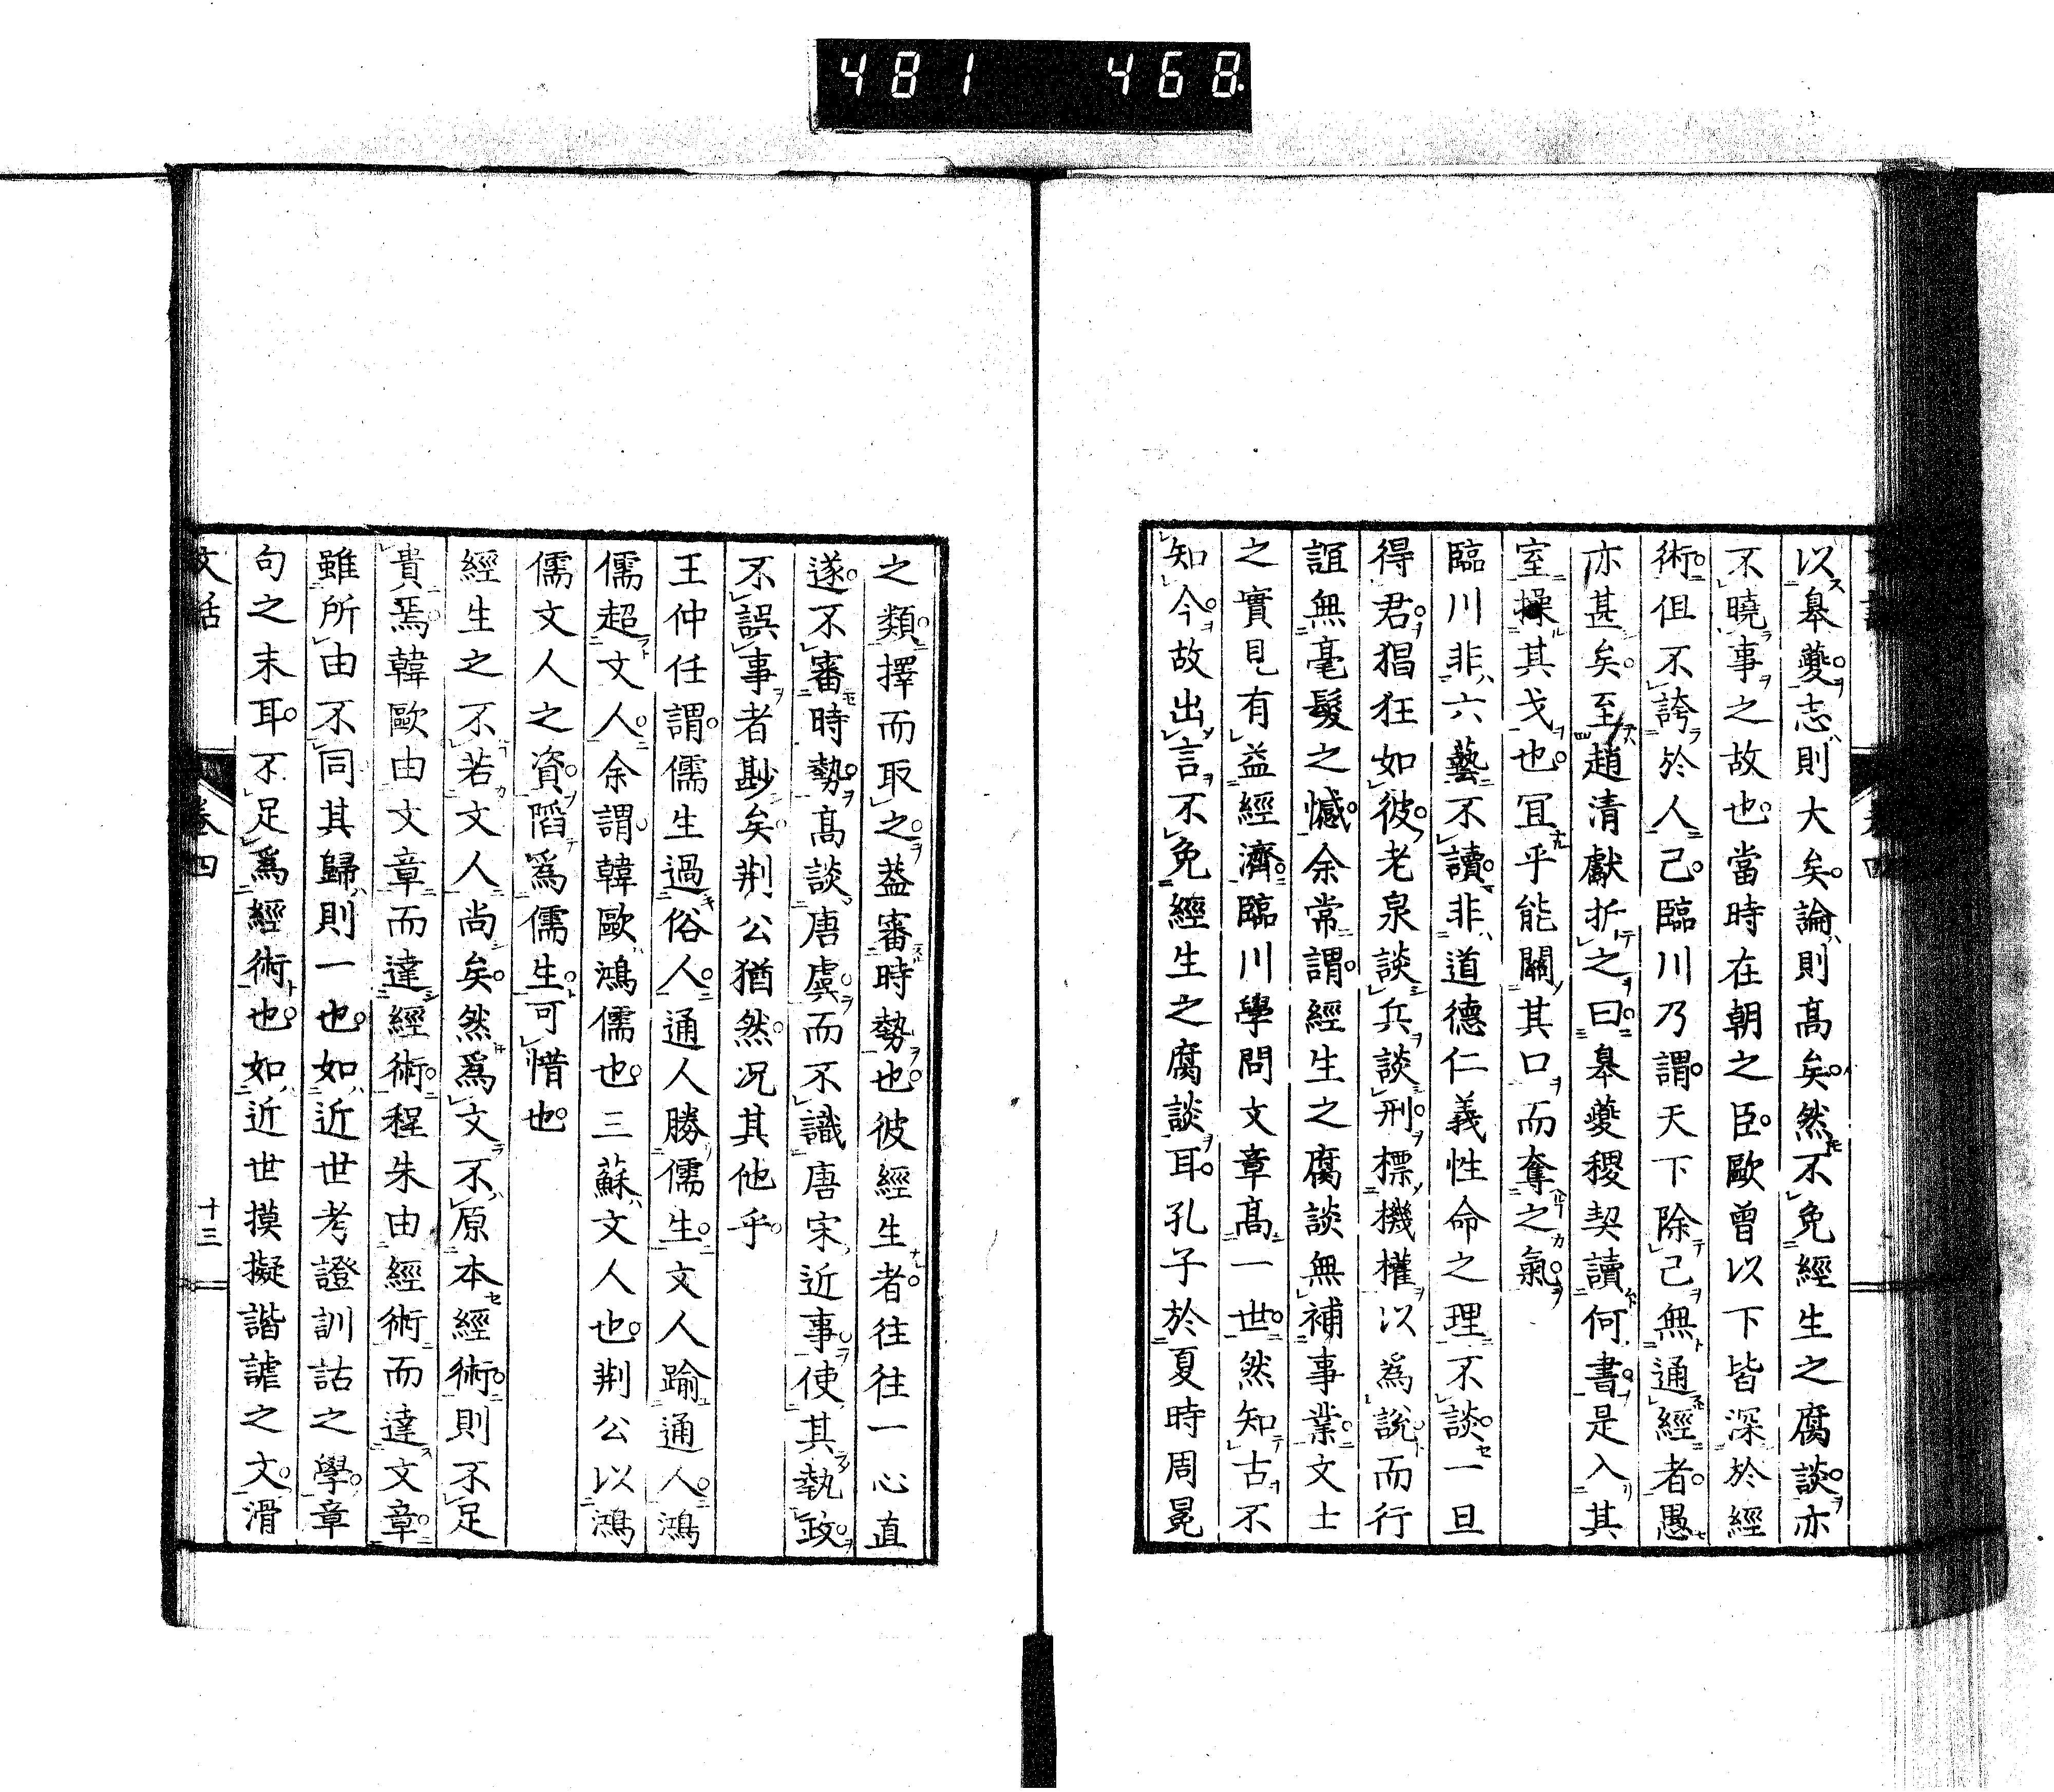 481 468
以皐夔志則大矣論則高矣然不免經生之腐談亦
不曉事之故也當時在朝之臣歐曾以下皆深於經
術但不誇於人己臨川乃謂天下除己無通經者愚
亦甚矣至趙清獻折之曰皐夔稷契讀何書是入其
室操其戈也宜乎能關其口而奪之氣
臨川非六藝不讀非道德仁義性命之理不談一旦
得君猖狂如彼老泉談兵談刑標機權以爲說而行
誼無毫髮之憾余常謂經生之腐談無補事業文士
之實見有益經濟臨川學問文章高一世然知古不
知今故出言不免經生之腐談耳孔子於夏時周冕
之類擇而取之蓋審時勢也彼經生者往往一心直
遂不審時勢高談唐虞而不識唐宋近事使其執政
不誤事者尠矣荆公猶然况其他乎
王仲任謂儒生過俗人通人勝儒生文人踰通人鴻
儒超文人余謂韓歐鴻儒也三蘇文人也荆公以鴻
儒文人之資蹈爲儒生可惜也
經生之不若文人尚矣然爲文不原本經術則不足
貴焉韓歐由文章而達經術程朱由經術而達文章
雖所由不同其歸則一也如近世考證訓詁之學章
句之末耳不足爲經術也如近世摸擬諧謔之文滑
文話 卷四 十三